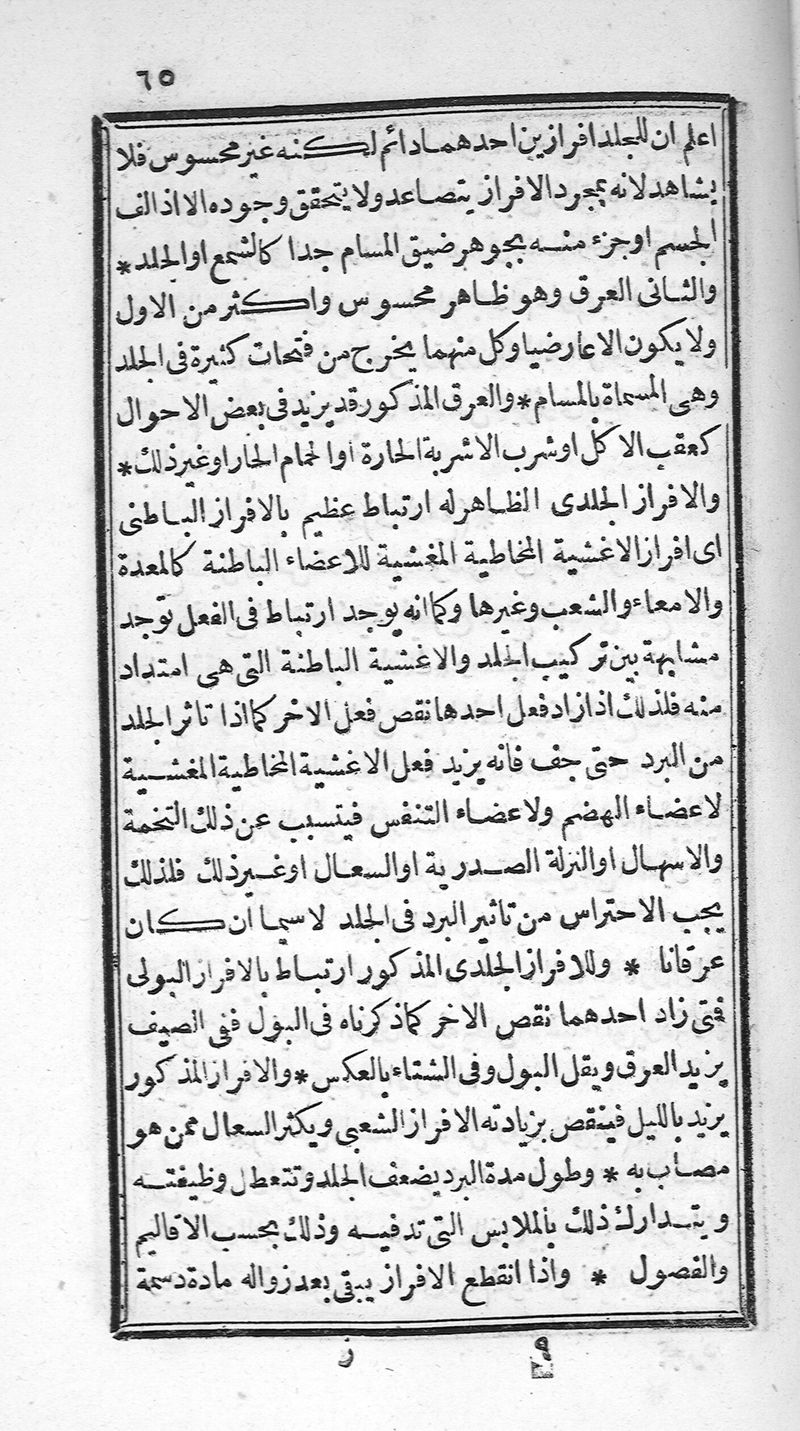 ٦٥
اعلم ان للجلد افرازين احدهما دائم لكنه غير محسوس فلا
يشاهد لانه بمجرد الافراز يتصاعد ولا يتحقق وجوده الا اذا لف
الجسم او جزء منه بجوهر ضيق المسام جدا كالشمع او الجلد *
والثانى العرق وهو ظاهر محسوس واكثر من الاول
ولا يكون الا عارضيا وكل منهما يخرج من فتحات كثيرة فى الجلد
وهى المسماة بالمسام * والعرق المذكور قد يزيد فى بعض الاحوال
كعقب الاكل او شرب الاشربة الحارة او الحمام الحار او غير ذلك *
والافراز الجلدى الظاهر له ارتباط عظيم بالافراز الباطنى
اى افراز الاغشية المخاطية المغشية للاعضاء الباطنة كالمعدة
والامعاء والشعب وغيرها وكما انه يوجد ارتباط فى الفعل توجد
مشابهة بين تركيب الجلد والاغشية الباطنة التى هى امتداد
منه فلذلك اذا زاد فعل احدها نقص فعل الاخر كما اذا تاثر الجلد
من البرد حتى جف فانه يزيد فعل الاغشية المخاطية المغشية
لاعضاء الهضم ولاعضاء التنفس فيتسبب عن ذلك التخمة
والاسهال او النزلة الصدرية او السعال او غير ذلك فلذلك
يجب الاحتراس من تاثير البرد فى الجلد لاسيما ان كان
عرقانا * وللافراز الجلدى المذكور ارتباط بالافراز البولى
فمتى زاد احدهما نقص الاخر كما ذكرناه فى البول ففى الصيف
يزيد العرق ويقل البول وفى الشتاء بالعكس * والافراز المذكور
يزيد بالليل فينقص بزيادته الافراز الشعبى ويكثر السعال ممن هو
مصاب به * وطول مدة البرد يضعف الجلد وتتعطل وظيفته
ويتدارك ذلك بالملابس التى تدفيه وذلك بحسب الاقاليم
والفصول * واذا انقطع الافراز يبقى بعد زواله مادة دسمة
٩ ز